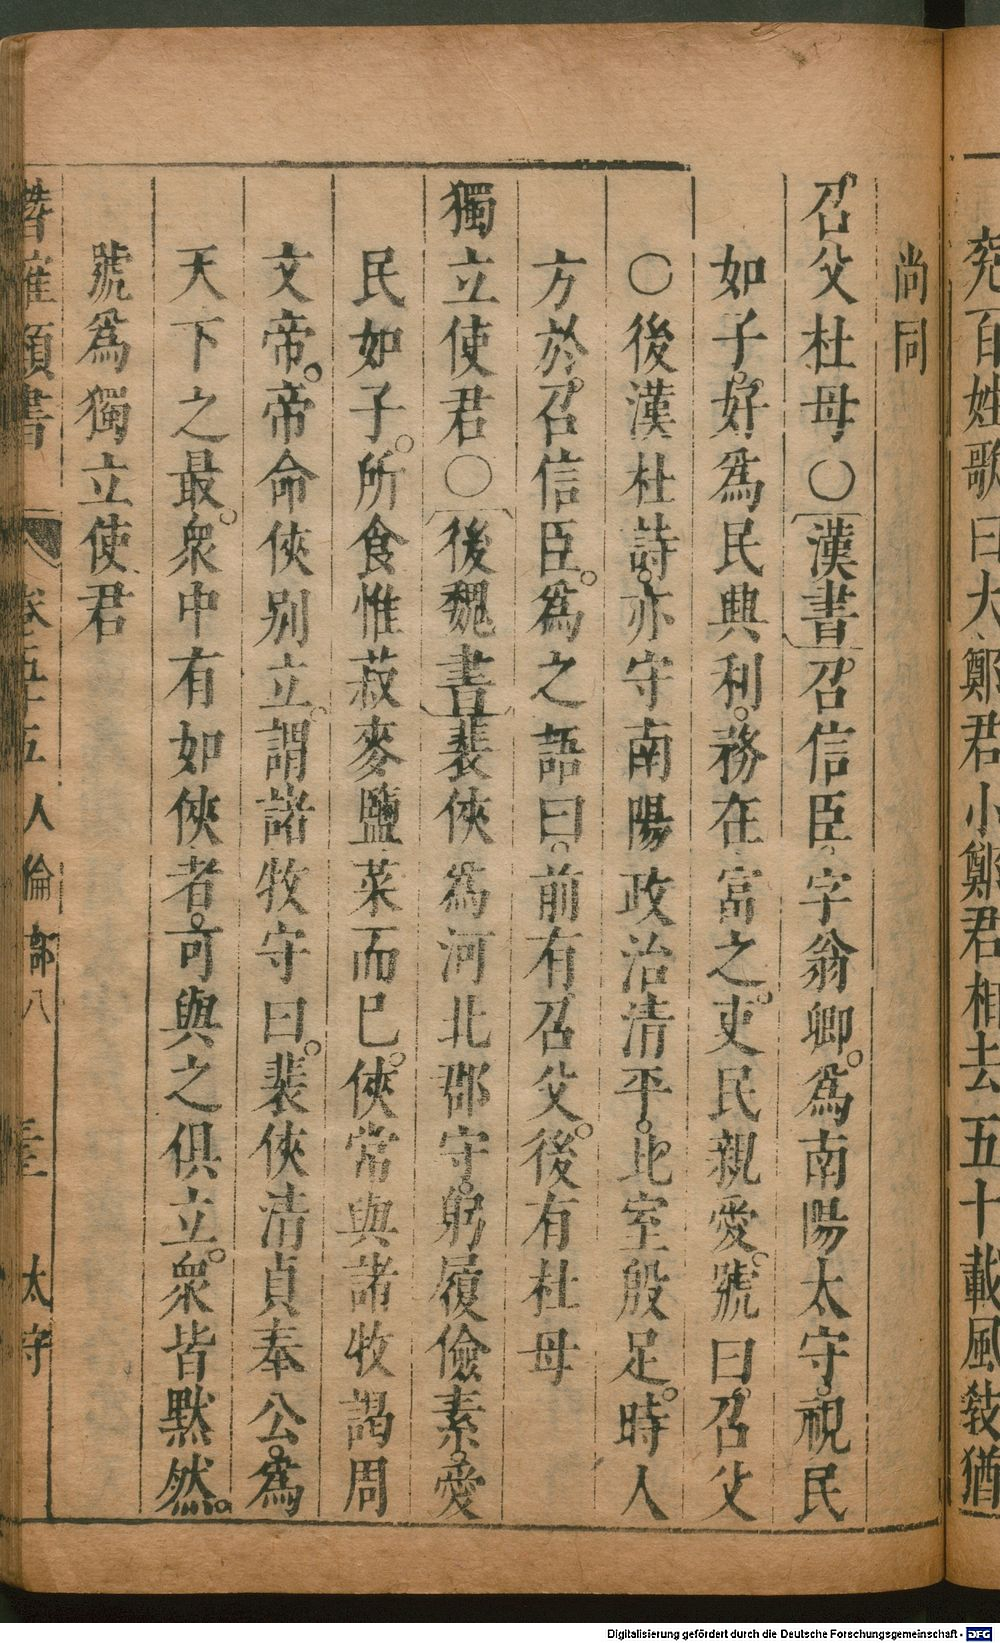 尭百姓歌曰大鄭君小鄭君相去五十載風敎猶
尚同
召父杜母○漢書召信臣字翁卿為南陽太守視民
如子好為民興利務在富之吏民親愛號曰召父
○後漢杜詩亦守南陽政治清平比室殷足時人
方於召信臣為之語曰前有召父後有杜母
獨立使君○後魏書裴俠為河北郡守躬履儉素愛
民如子所食惟菽麥鹽菜而巳俠常與諸牧謁周
文帝帝命俠別立謂諸牧守曰裴俠清貞奉公為
天下之最衆中有如俠者可與之俱立衆皆默然
號為獨立使君
潛確類書 卷五十五 人倫部八 太守
Digitalisierung gefördert durch die Deutsche Forschungsgemeinschaft - DFG